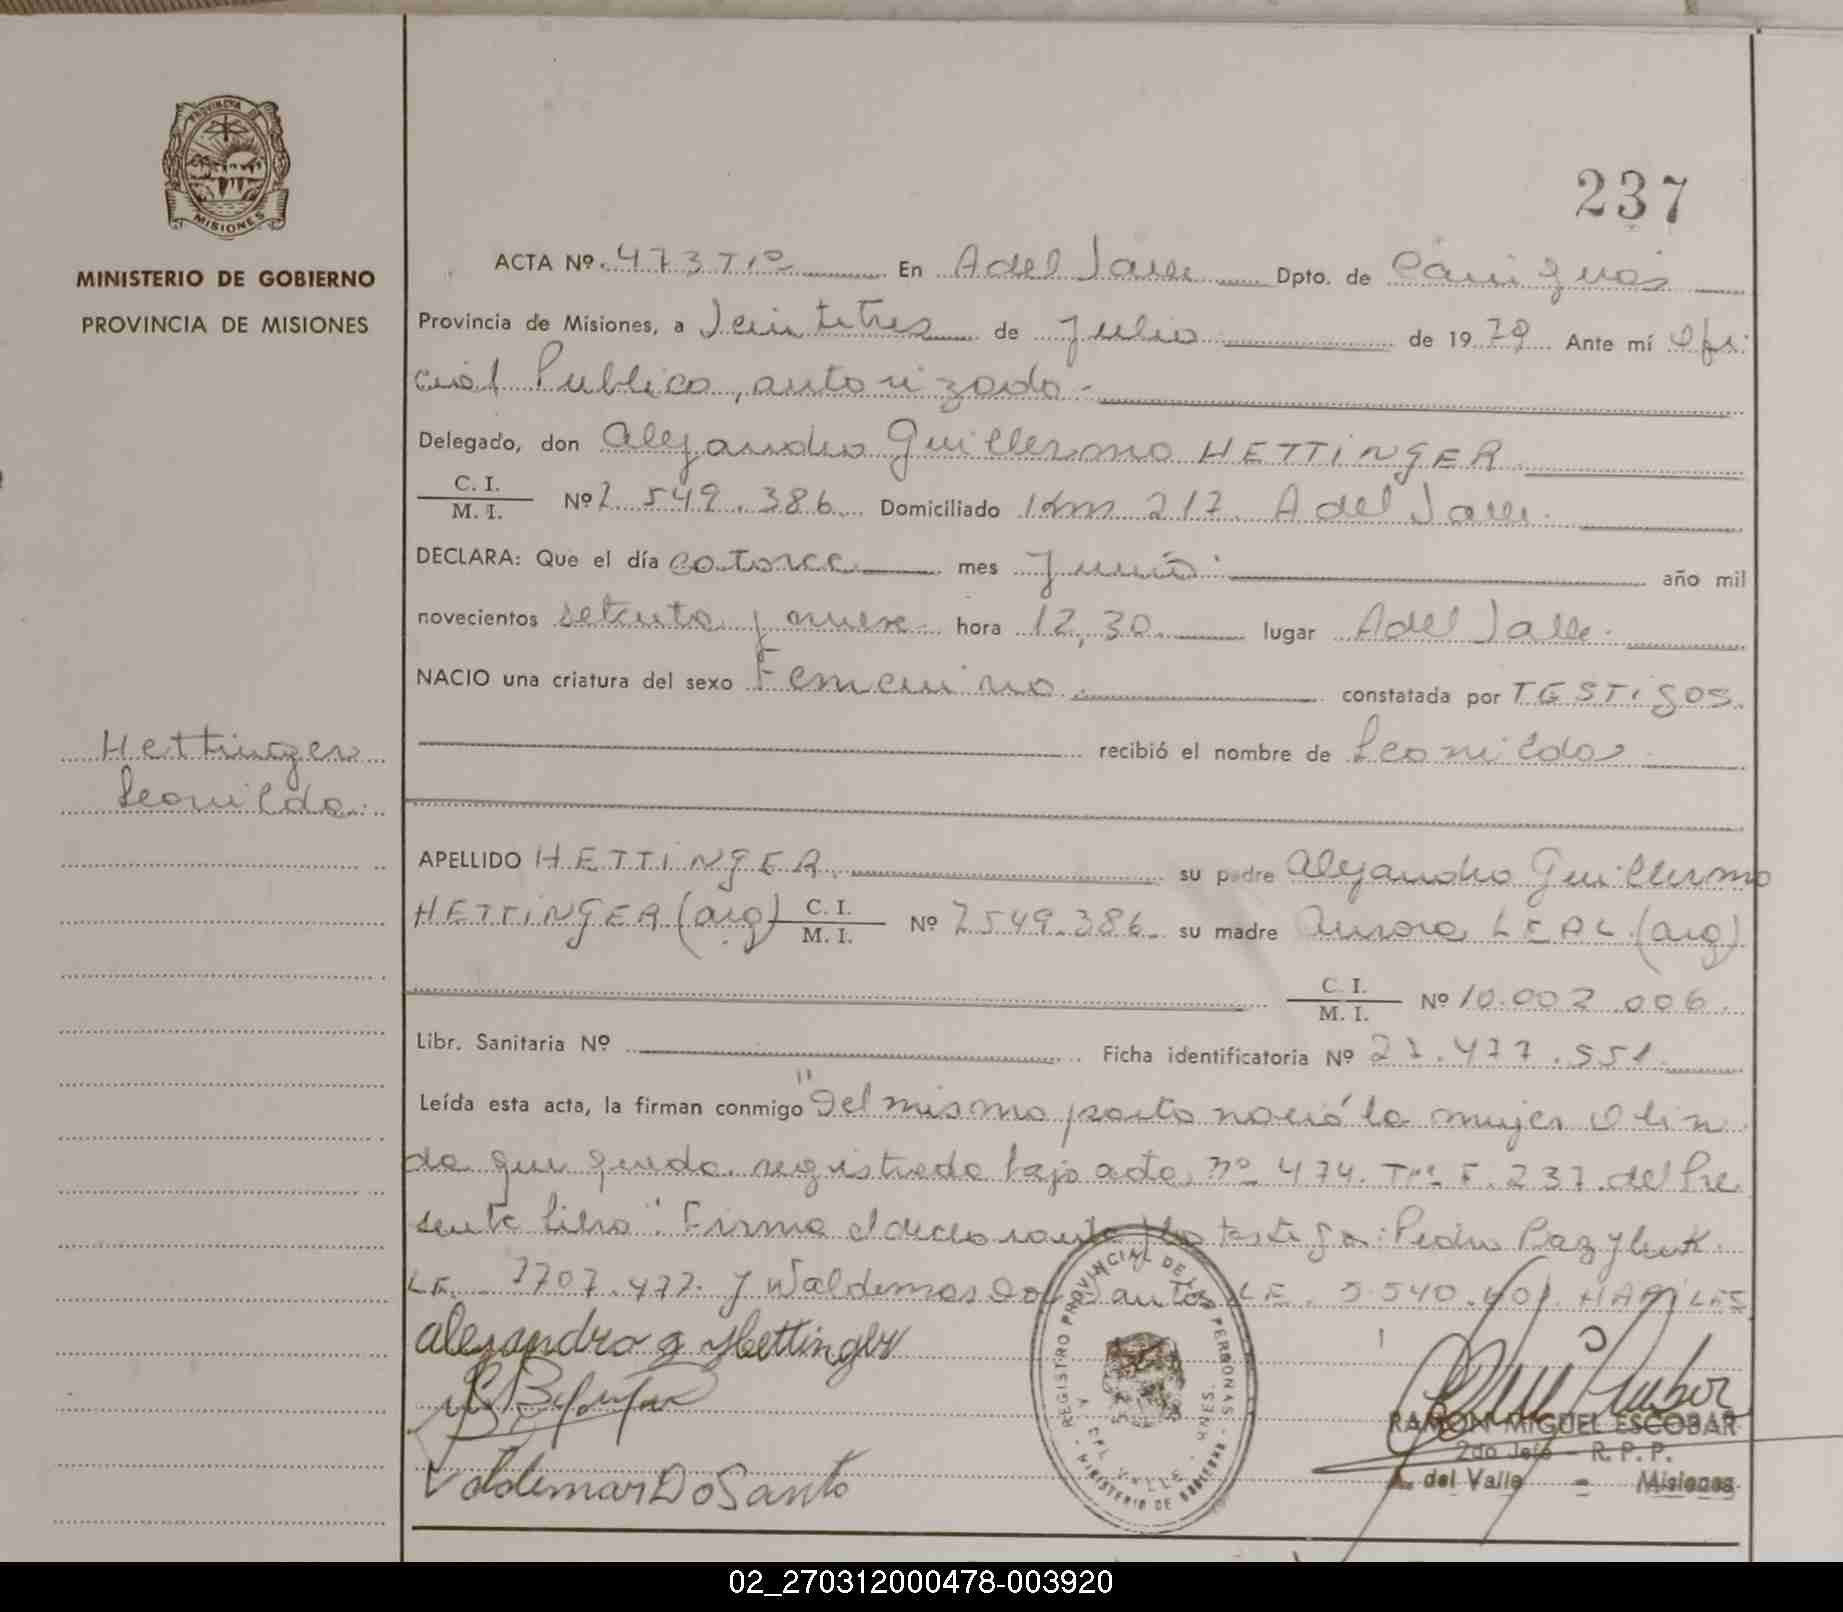 PROVINCIA DE
MISIONES
MINISTERIO DE GOBIERNO
PROVINCIA DE MISIONES
237
ACTA Nº. 473 Tº En A del Valle Dpto. de Cainguás
Provincia de Misiones, a Veintitres de Julio de 1979 Ante mí Ofi
cial Publico, autorizado.-
Delegado, don Alejandro Guillermo HETTiNGER
C. I.
M. I. Nº 7.549.386. Domiciliado Km 217. A del Valle.
DECLARA: Que el día catorce mes Junio año mil
novecientos setenta y nueve hora 12,30. lugar A del Valle.
NACIO una criatura del sexo Femenino. constatada por TESTigos.
recibió el nombre de Leonilda
Hettinger
Leonilda.
APELLIDO HETTiNGER. su padre Alejandro Guillermo
HETTiNGER (arg) C. I.
M. I. Nº 7549.386. su madre Aurora LEAL (arg)
C. I.
M. I. Nº 10.002.006.
Libr. Sanitaria Nº Ficha identificatoria Nº 27.477.551.
Leída esta acta, la firman conmigo "Del mismo parto nació la mujer Olin
da que queda registrada bajo acta nº 474. Tº F. 237 del Pre
sente libro". Firma el declarante y los testigos: Pedro
LE. 7707.477. y Waldemar Dos Santos LE. 5.540.401. HABiLES
Alejandro G Hettinger
Valdemar Do Santo
REGISTRO PROVINCIAL DE LAS PERSONAS
A. DEL VALLE - MNES.
- MINISTERIO DE GOBIERNO -
RAMON MIGUEL ESCOBAR
2do Jefe - R. P. P.
A. del Valle = Misiones
02_270312000478-003920